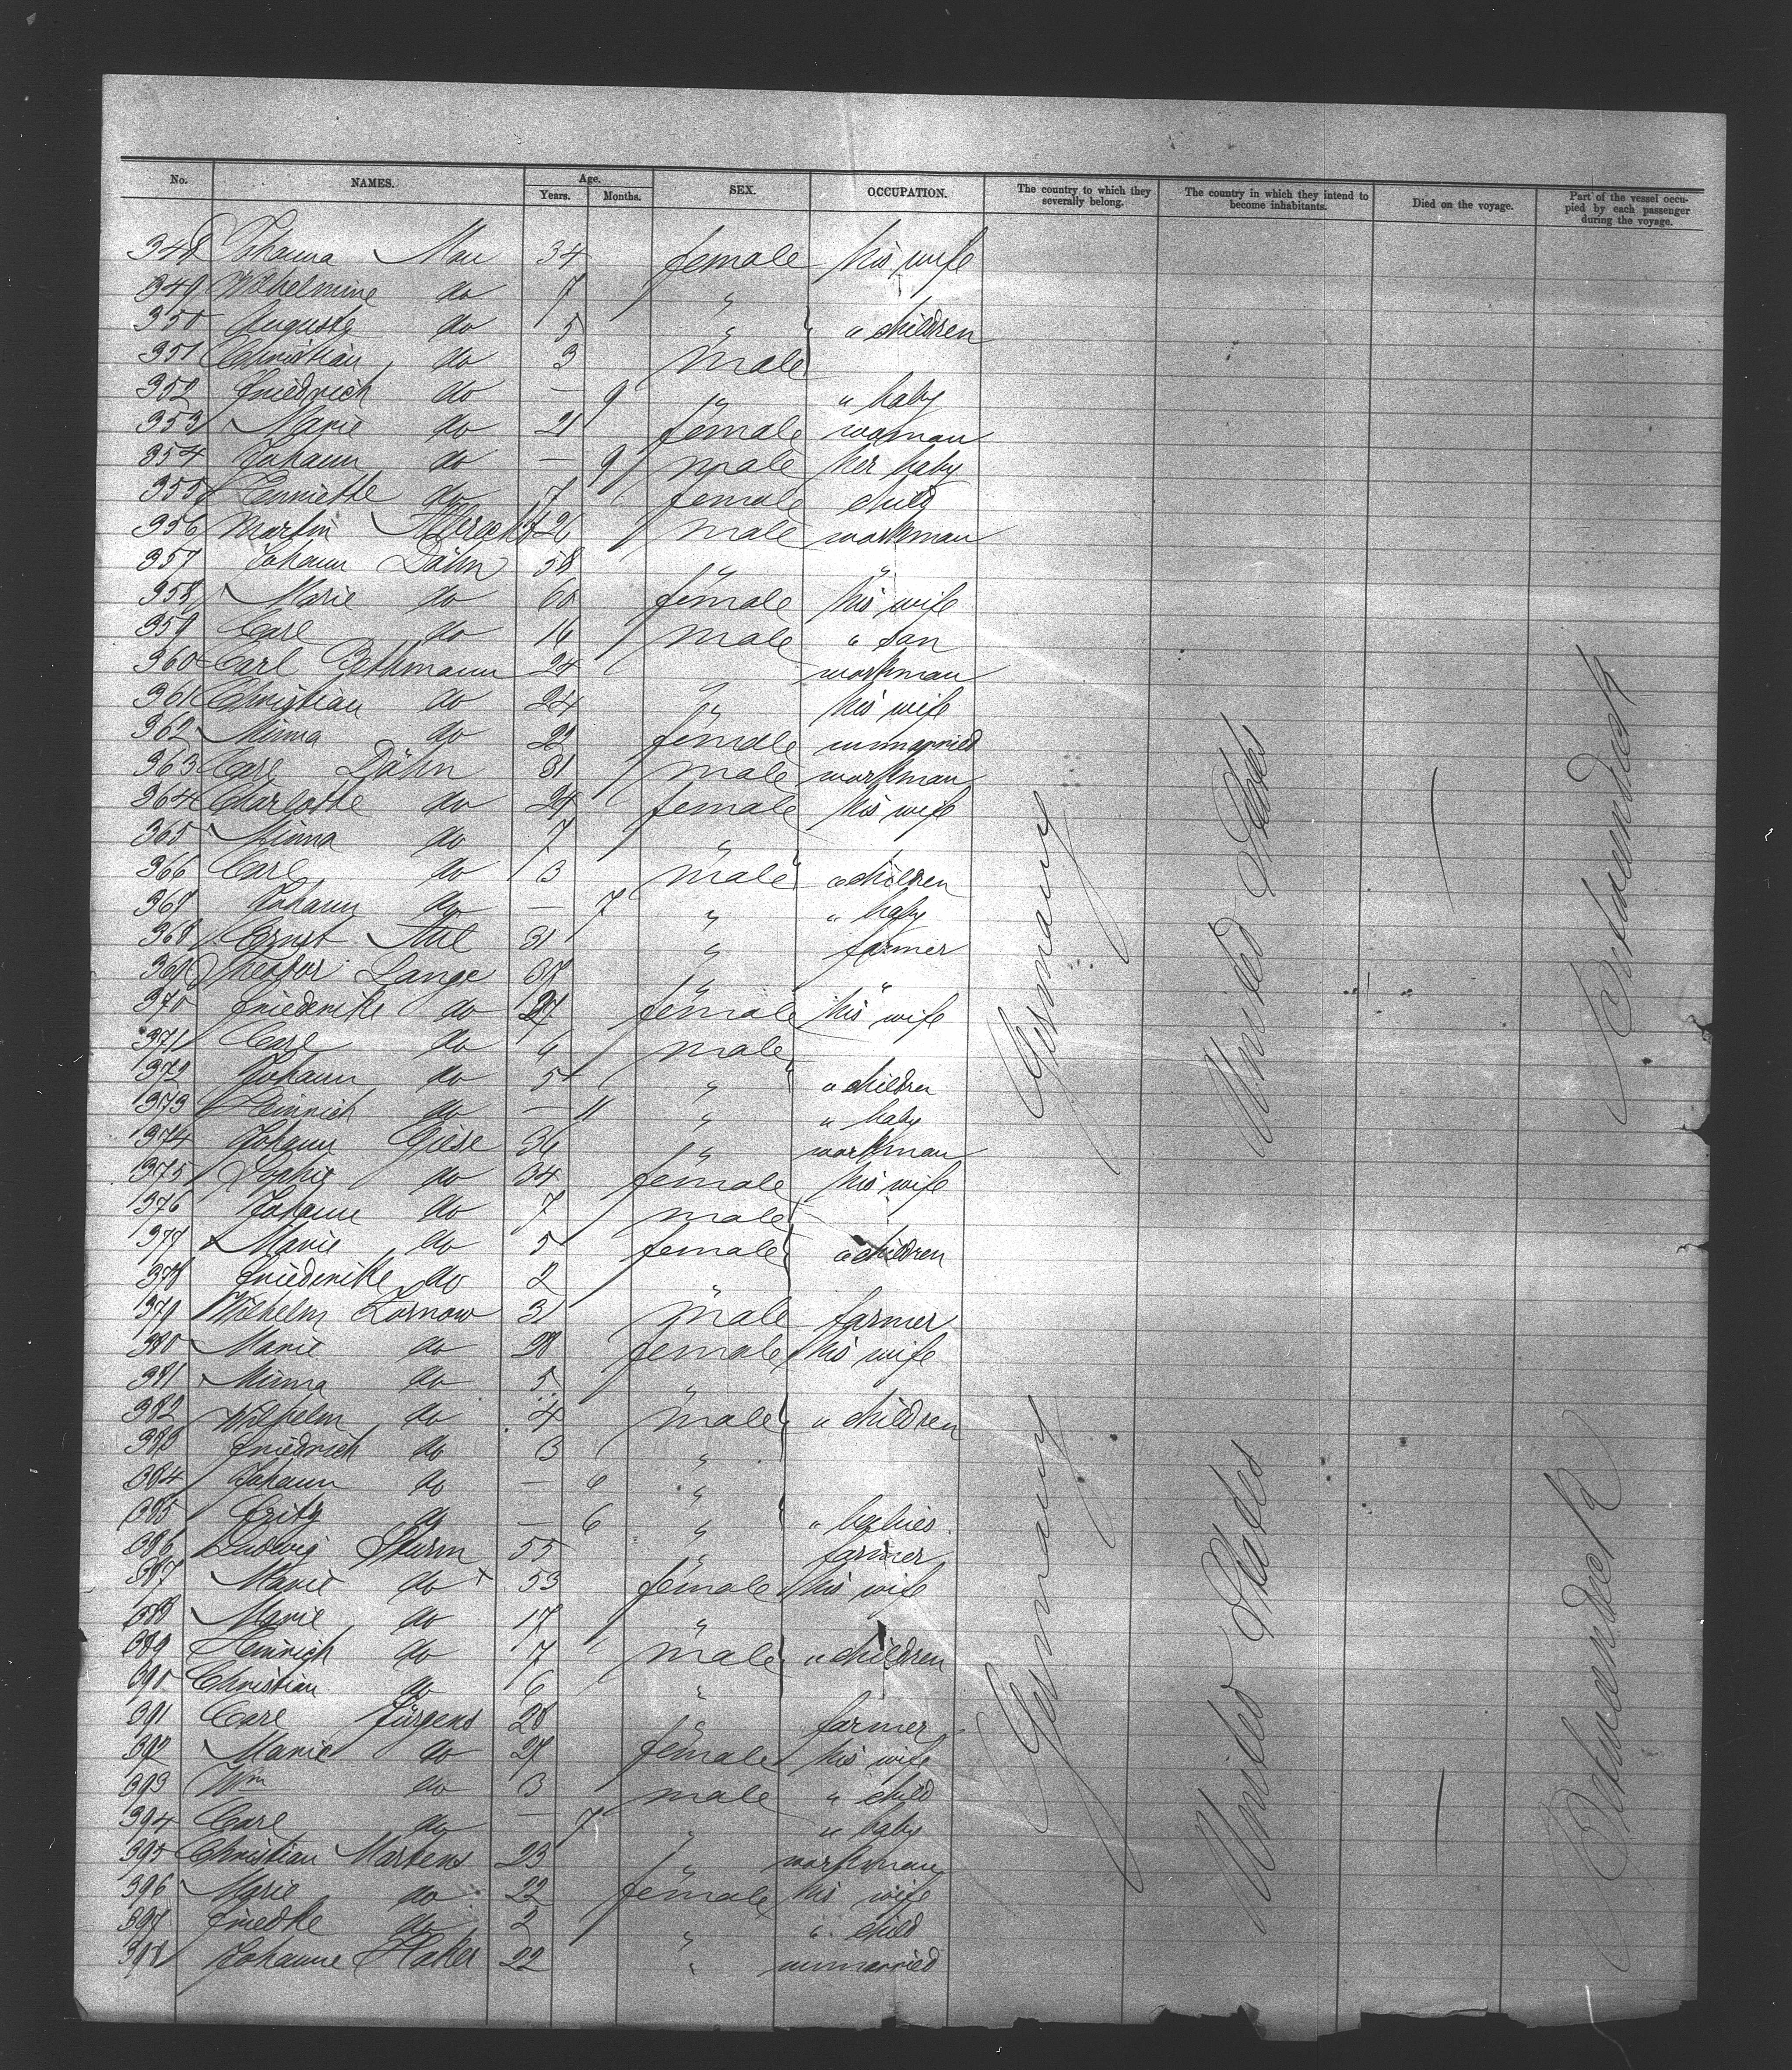 No. NAMES. Age. Years. Months. SEX. OCCUPATION. The country to which they severally belong. The country in which they intend to become inhabitants. Died on the voyage. Part of the vessel occupied by each passenger during the voyage.
348 Johanna Mau 34 female his wife
349 Wilhelmine do 7 "
350 Auguste do 5 " " children
351 Christian do 3 male
352 Friedrich do — 9 " " baby
353 Marie do 21 female woman
354 Johann do — 9 male her baby
355 Henriette do 7 female child
356 Martin Albrecht 26 male workman
357 Johann Dähn 58 " "
358 Marie do 60 female his wife
359 Carl do 16 male " son
360 Carl Bethmann 24 workman
361 Christian do 24 " his wife
362 Minna do 22 female unmarried
363 Carl Dähn 31 male workman
364 Charlotte do 24 female his wife
365 Minna do 7 "
366 Carl do 3 male " children
367 Johann do — 7 " " baby
368 Ernst 31 " farmer
369 Theodor Lange 37 " "
370 Friederike do 27 female his wife
371 Carl do 6 male
372 Johann do 5 " " children
373 Heinrich do — 11 " " baby
374 Johann Giese 36 " workman
375 Sophie do 34 female his wife
376 Johann do 7 male
377 Marie do 5 female " children
378 Friederike do 2 "
379 Wilhelm Zornow 31 male farmer
380 Marie do 28 female his wife
381 Minna do 5 "
382 Wilhelm do 4 male " children
383 Friedrich do 3 "
384 Johann do — 6 "
385 Fritz do — 6 " " babies
386 Ludwig Sturm 55 " farmer
387 Marie do x 53 female his wife
388 Marie do 17 "
389 Heinrich do 7 male " children
390 Christian do 6 "
391 Carl Jürgens 28 " farmer
392 Marie do 27 female his wife
393 Wm do 3 male " child
394 Carl do — 7 " " baby
395 Christian Martens 23 " workman
396 Marie do 22 female his wife
397 Friedke do 2 " " child
398 Johanne 22 " unmarried
Germany
United States
—
Zwischendeck
Germany
United States
—
Zwischendeck